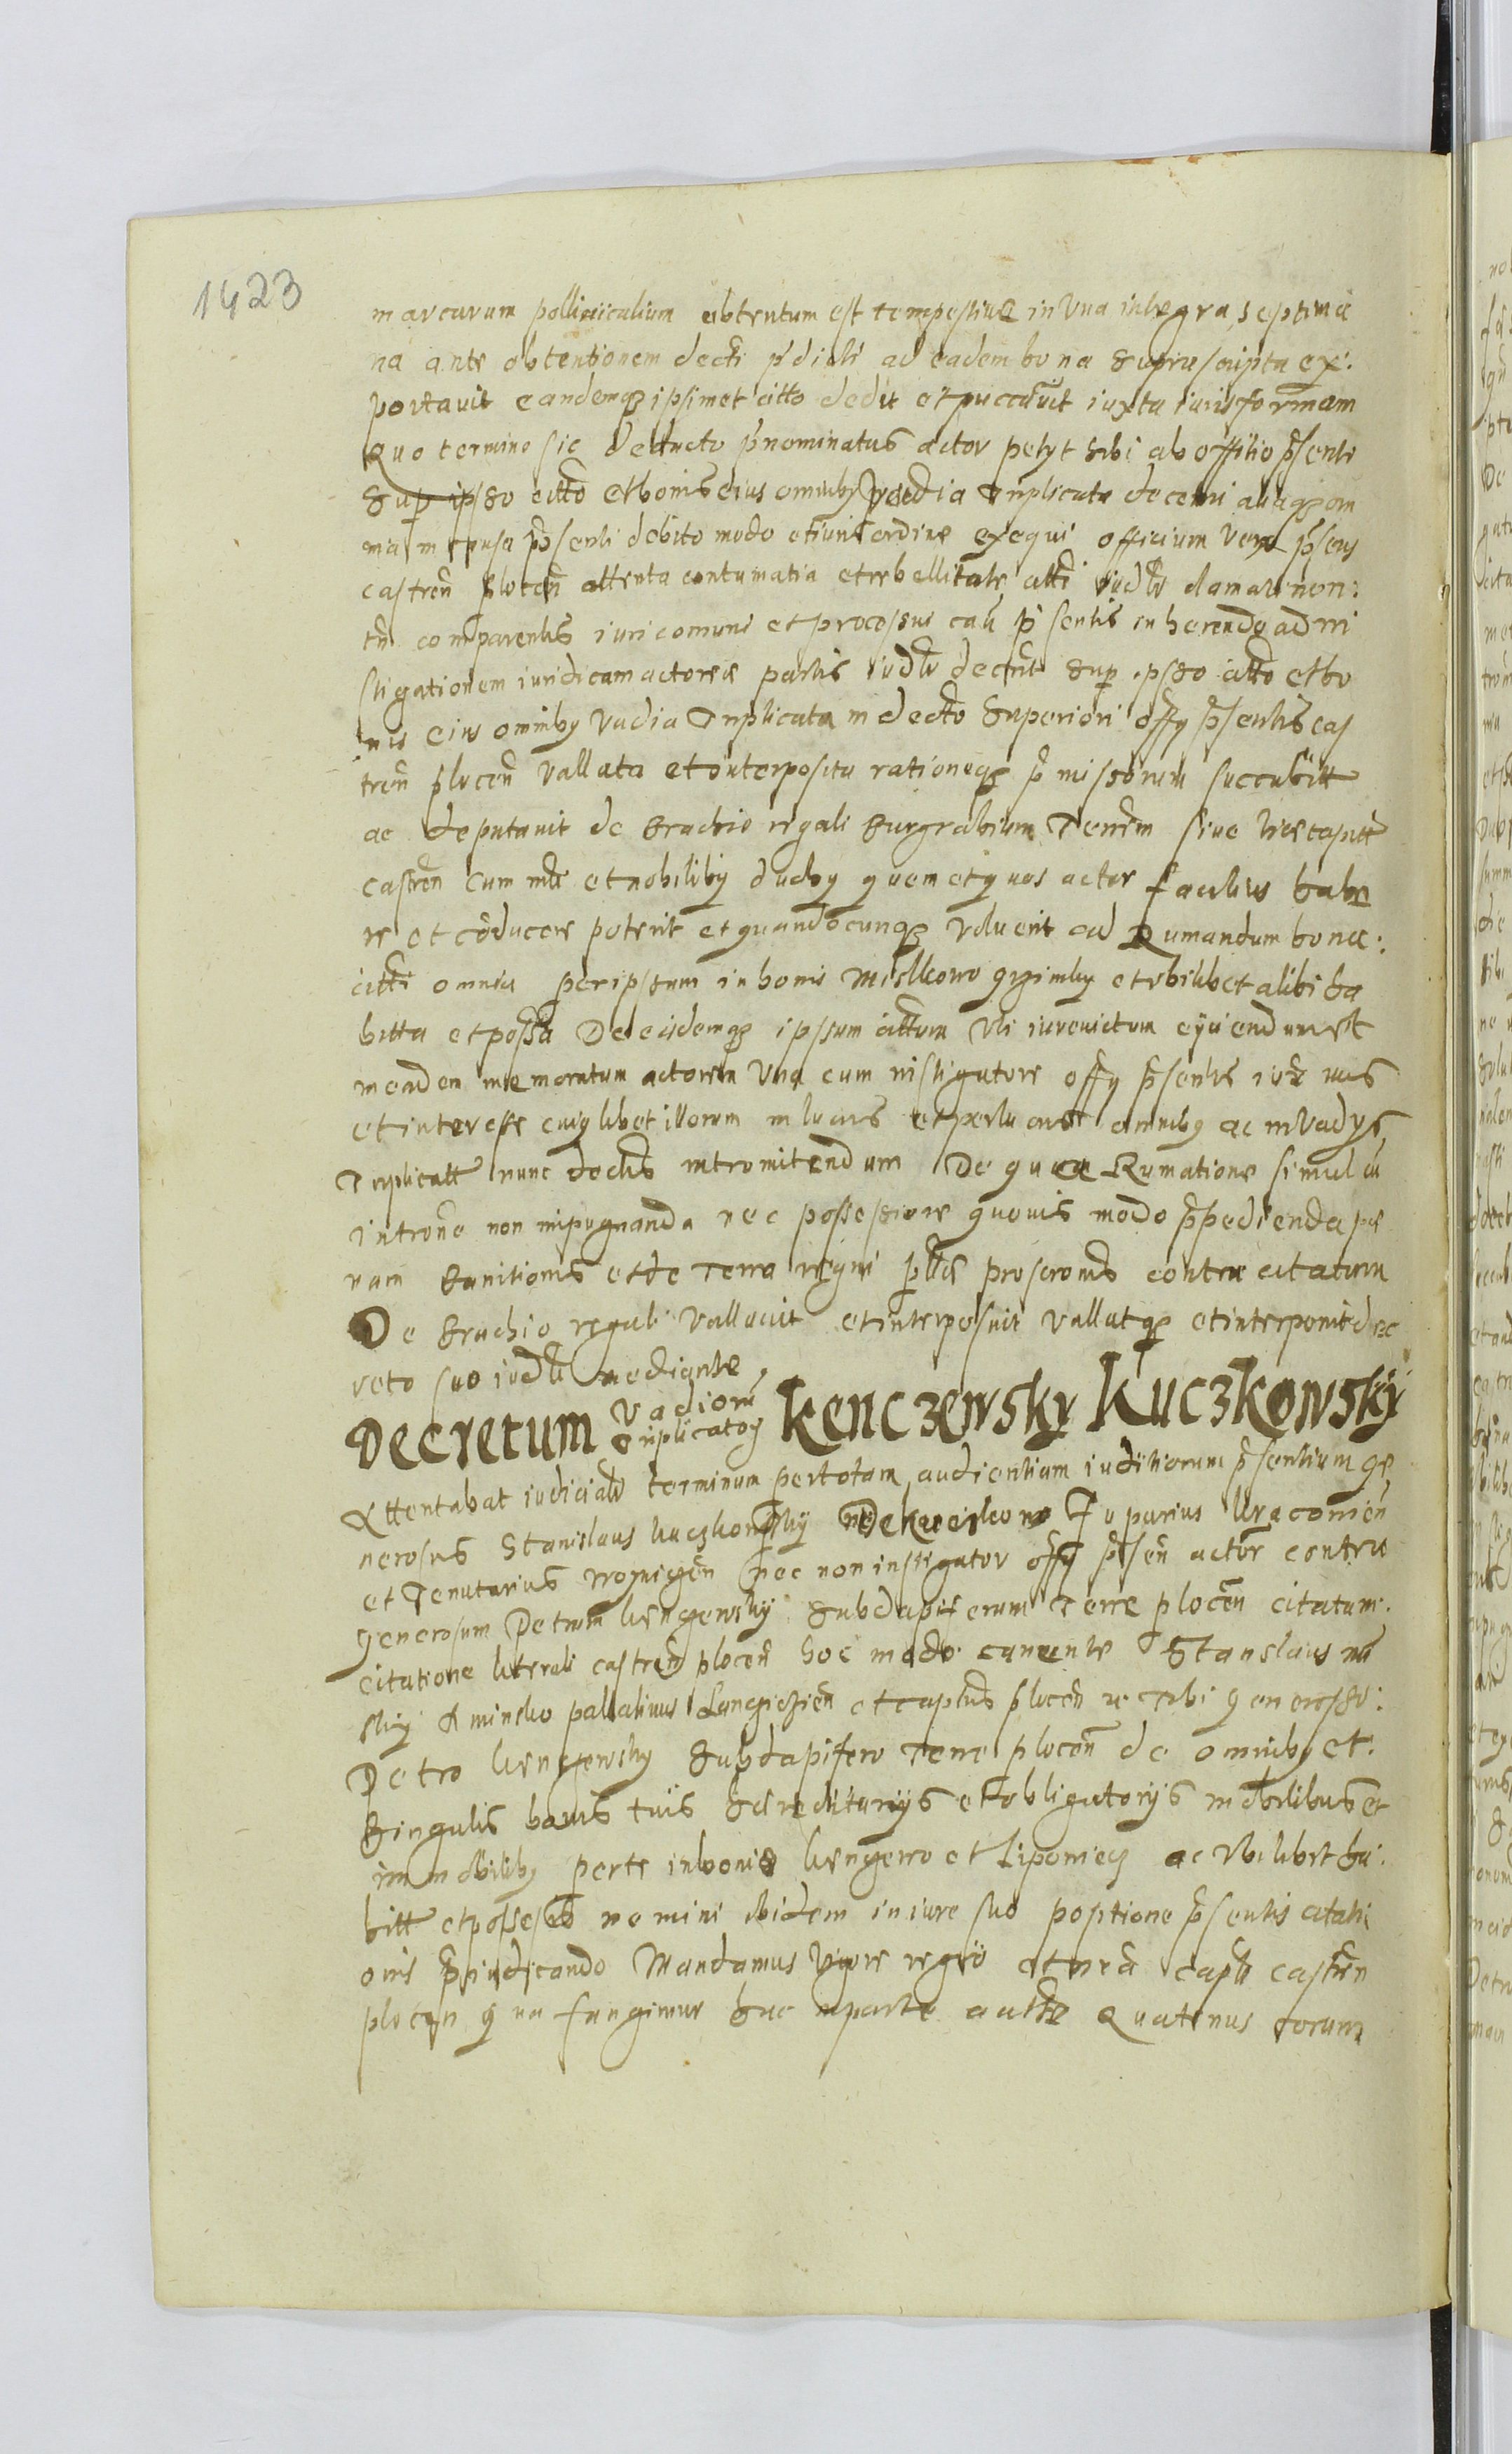 1423
marcarum pollicitalium obtentum est tempestive in una integra septima
na ante obtentionem decti pdicti ad eadem bona suprascripta ex:
portavit eandemq ipsimet citto dedit et iuxta iuris formam
Quo termino sic deducto pnominatus actor petyt sibi ab offitio psenti
Sup ipso citto et bonis eius omnib vadia triplicata decerni aliaq om
nia in causa psenti debito modo et iuris ordine exequi officium vero psens
castren plocen attenta contumatia et rebellitate citti iudlr clamati non:
tn comparentis iuri comuni et processui caū psentis inherendo ad in
stigationem iuridicam actoreæ partis iudlr decrēt Sup ipso citto et bo
nis eius omnib vadia Triplicata in decto superiori offy psentis cas
tren plocen vallata et interposita rationeq pmissorum succubuit
ac deputavit de Brachio regali Burgrabium Terrem sive vicecaptt
castren cum mli et nobilib duob quem et quos actor facilius habe
re et coducere poterit et quandocunq voluerit ad Rumandum bona:
citti omnia per ipsum in bonis grzimky et ubilibet alibi ha
bitta et possa De eisdemq ipsum cittum uti iurevictum eyciendum et
in eadem memoratum actorem una cum instigatore offy psentis
et interesse cuiuslibet illorum in lucris et perlucris omnib ac in vadys
Triplicatt nunc dectis intromitendum De qua Rumatione simul cū
introne non impugnanda nec possessione quovis modo ppedienda pœ
nam Banitionis et de Terra regni proscronis contra citatum
De Brachio regali vallavit et interposuit vallatq et interponit dec
reto suo iudlr mediante
Decretum vadiorū triplicatoꝝ Kenczewsky Kuczkowsky
Attentabat iudicialr terminum per totam audientiam iuditiorum psentium ge
nerosus Stanislaus kuczkowsky De Juparius Cracovien
et Tenutarius nec non instigator offy psen actor contra
generosum Petrum kengewsky Subdapiferum Terre plocen citatum.
citatione literali castren plocen hoc modo canente Stanslaus mi
sky A minsko pallatinus Lanczicien et captus plocen Tibi generoso:
Petro kengewsky Subdapifero Terre plocen de omnib et
Singulis bonis tuis hereditariis et obligatoriis mobilibus et
immobilib perte in bonis kengewo et Lipomecz ac ubilibet ha:
bitt et possessis nemini ibidem in iure suo positione psentis citati
onis piudicando Mandamus vigore regio et nra captli castren
plocen qua fungimur hac in parte authte Quatinus coram